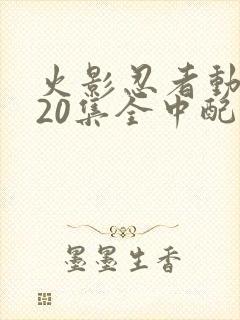 火影忍者動
20集全中配
墨墨生香